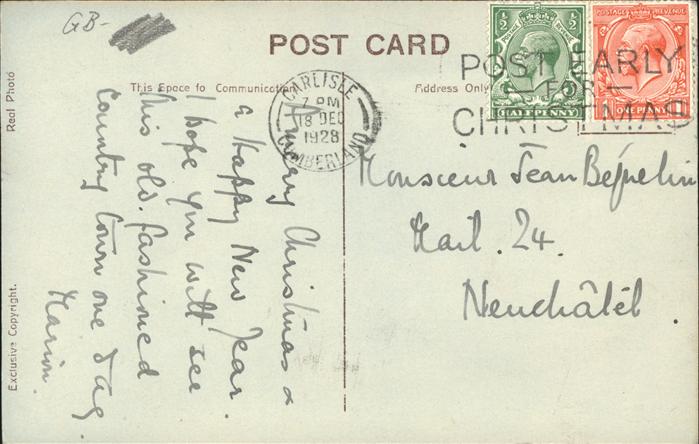 GB-
POST CARD
This Space for Communication
Address Only
Real Photo
Exclusive Copyright.
CARLISLE
7 PM
18 DEC
1928
CUMBERLAND
POST EARLY
FOR
CHRISTMAS
HALF PENNY
POSTAGE REVENUE
ONE PENNY
A merry Christmas &
a Happy New Year.
I hope you will see
this old fashioned
country town one day
Marion.
Monsieur Jean Béguelin
Mail. 24.
Neuchâtel